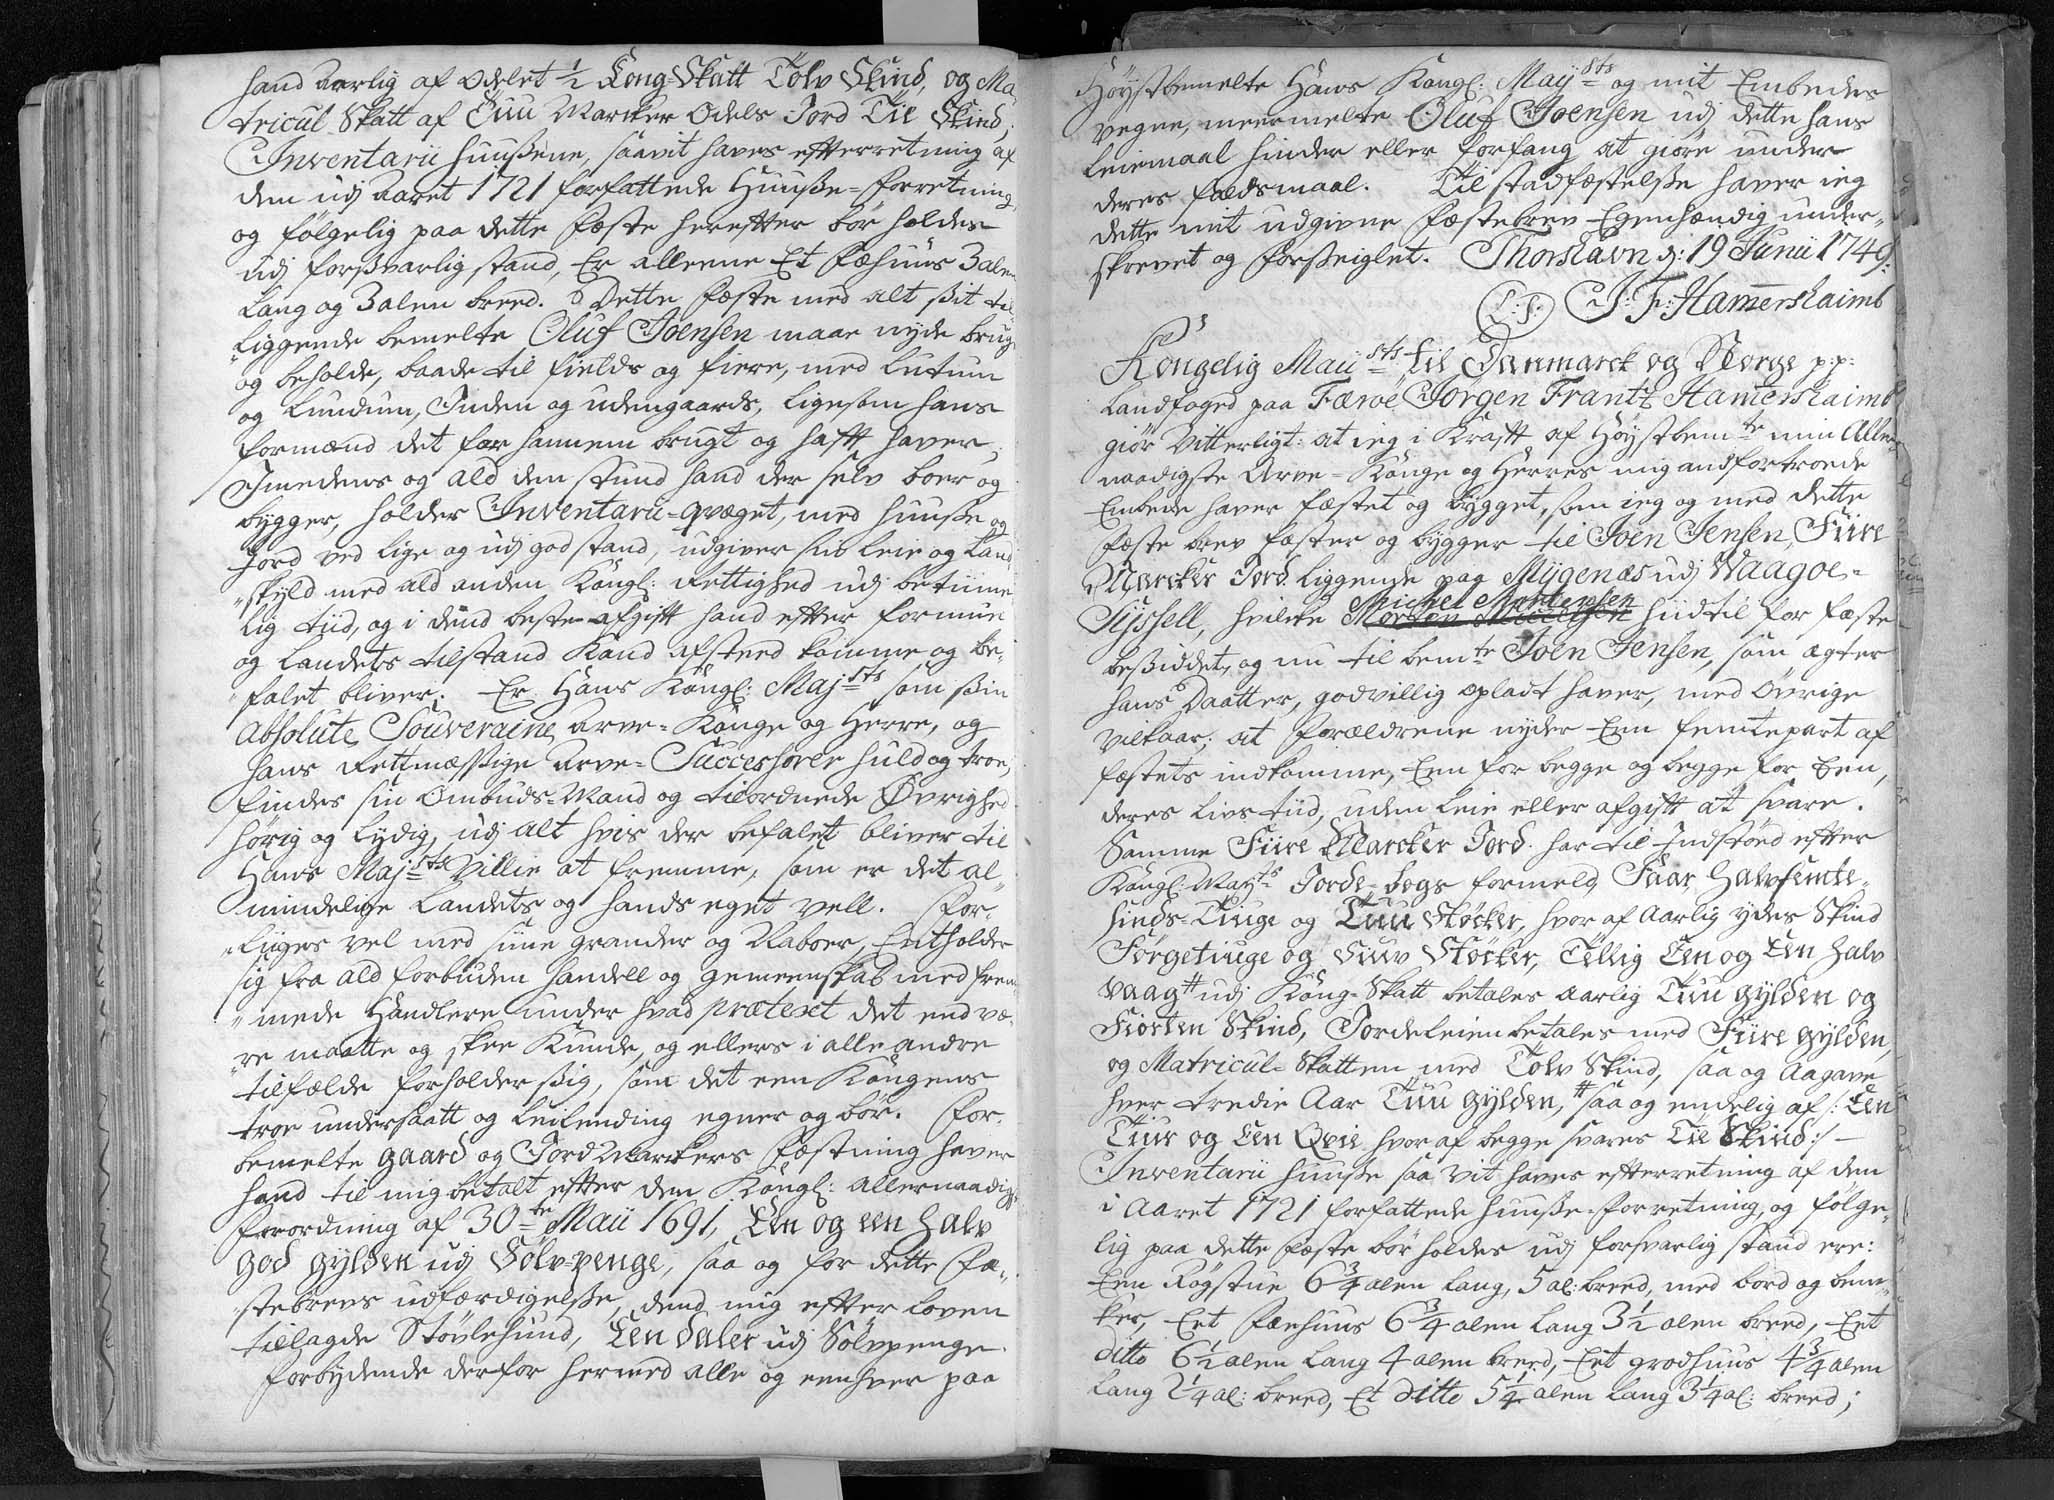 hand Aarlig af Odelet ½ Kong-Skatt Tolv Skind, og Ma-
tricul Skatt af Tuu Marcker Odels Jord Tie Skind;
Inventarii huusene, saavit haves efterretning af
den udj Aaret 1721 forfattede Huuse-forretning,
og følgelig paa dette Fæste herefter bør holdes
udj forsvarlig stand, Er alleene Et Fæhuus 3 alen
lang og 3 alen breed. Dette Fæste med alt sit til-
liggende bemelte Oluf Joensen maae nyde bruge
og beholde, baade til fields og fiere, med Lutum
og Lundum, Inden og udengaards, ligesom hans
formænd det før hannem brugt og hafft haver,
Imedens og ald den stund hand der selv boer og
bygger, holder Inventarii-qvæget, med huuse og
Jord ved lige og udj god stand, udgiver sin leie og Land-
skyld med ald anden Kongl: Rettighed udj betiime-
lig tiid, og i dend beste afgift hand efter formue
og Landets tilstand kand afsted komme og be-
falet bliver. Er Hans Kongl: Maj:sts som sin
absolute Souveraine Arve-Konge og Herre, og
hans Rettmæssige Arve-Successorer huld og troe,
findes sin Ombuds-Mand og tilordnede Øvrighed
hørig og lydig, udj alt hvis der befalet bliver til
Hans Maj:sts Villie at fremme, som er det al-
mindelige Landets og hands eget vell. For-
liiges vel med siine grander og Naboer, Entholder
sig fra ald forbuden handell og gemeenskab med frem-
mede Handlere under hvad prætext det end væ-
re maatte og skee kunde, og ellers i alle andre
tilfælde forholder sig, som det een Kongens
troe undersaatt og leilending egner og bør. For-
bemelte gaard og Jord Markers Fæstning haver
hand til mig betalt efter den Kongl: allernaadigst
forordning af 30te Maii 1691, Een og een halv
god gylden udj Sølv-penge, saa og for dette Fæ-
stebrevs udfærdigelse, dend mig efter loven
tillagde Støvlehund, Een daler udj Sølvpenge.
forbydende derfor hermed alle og eenhver paa
Høystbemelte Hans Kongl: Maij:sts og mit Embedes
vegne, meermelte Oluf Joensen udj dette hans
leiemaal hinder eller forfang at giøre under
deres faldsmaal. Til stadfæstelse haver ieg
dette mit udgivne Fæstebrev Egenhændig under-
skrevet og forseiglet. Thorshavn d: 19 Junii 1749:
(L:S:) J: F: Hamershaimb
Kongelig Maii:sts til Danmarck og Norge p:p:
Landfoged paa Færoe Jørgen Frantz Hamershaimb
giør Vitterligt: at ieg i Krafft af Høystbemte min Aller-
naadigste Arve-Konge og Herres mig anfortroede
Embede haver fæstet og bygget, som ieg og med dette
fæste brev fæster og bygger til Joen Jensen, Fiire
Marcker Jord liggende paa Mygenæs udj Waagoe-
Michel Mortensen
Syssell, hvilcke Morten Michelsen hidtil for fæste
besiddet, og nu til bemte Joen Jensen, som ægter
hans Daatter, godvillig opladt haver, med øvrige
vilkaar; at Forældrene nyder Een femtepart af
fæstets indkomme, Een for begge og begge for Een,
deres livs tiid, uden leie eller afgift at svare.
Samme Fiire Marcker Jord har til Indstød efter
Kongl: May:ts Jorde-bogs formeld, Faar Halvfemte-
sinds-Tiuge og Tuu Støcker, hvor af Aarlig ydes Skind
Førgetiuge og Siuv Støcker, Tellig Een og Een halv
vaag # udj Kong-Skatt betales Aarlig Tuu gylden og
Fiorten Skind, Jordeleien betales med Fiire gylden,
og Matricul-Skatten med Tolv Skind, saa og Aagave
hver tredie Aar Tuu gylden, # saa og endelig af /: Een
Tiur og Een Qvie hvoraf begge svares Tie Skind :/ —
Inventarii huuse saa vit haves efterretning af den
i Aaret 1721 forfattede huuse-forretning, og følge-
lig paa dette Fæste bør holdes udj forsvarlig stand ere:
Een Rogstue 6¾ alen lang, 5 al: breed, med bord og ben-
ker, Eet Fæhuus 6¾ alen lang 3½ alen breed, Eet
ditto 6½ alen lang 4 alen breed, Eet grodhuus 4¾ alen
lang 2¼ al: breed, Et ditto 5¼ alen lang 3¼ al: breed;